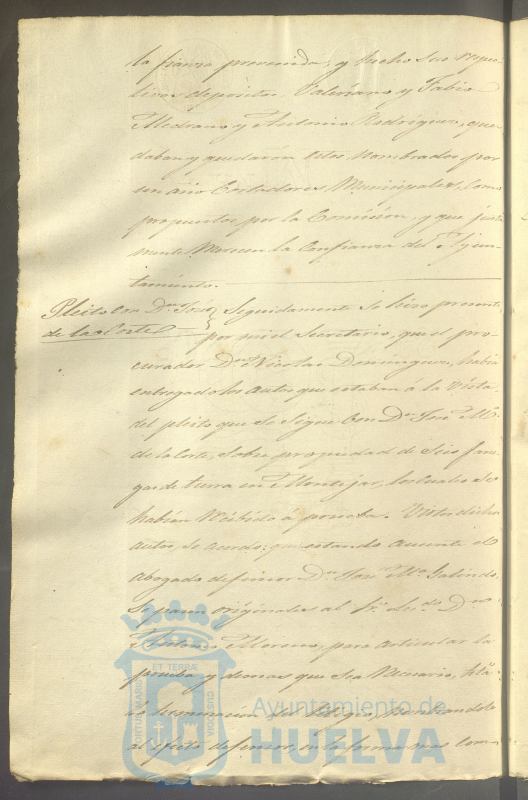 la fianza prevenida, y hecho sus respec-
tivos depósitos Valeriano y Fabio
Medrano y Antonio Rodriguez, que-
daban y quedaron estos nombrados por
un año Cortadores Municipales, como
propuestos por la Comision, y que justa-
mente merecen la Confianza del Ayun-
tamiento.
Pleito con Dn. José
de la Corte
Seguidamente se hizo presente
por mi el Secretario, que el pro-
curador Dn. Nicolas Dominguez, habia
entregado los autos que estaban á la Vista
del pleito que se sigue con Dn. José Ma.
de la Corte, sobre propiedad de seis fane-
gas de tierra en Montijar, los cuales se
habian recibido á prueba. Vistos dichos
autos, se acordó: que estando ausente el
abogado defensor Dn. José Ma. Galindo,
se pasen originales al Sr. Lcdo. Dn.
Antonio Moreno, para articular la
prueba y demas que sea necesario, hta.
la terminacion del litigio, nombrandole
al efecto defensor, en la forma mas com-
PORTUS MARIS
ET TERRÆ
CUSTODIA
Ayuntamiento de
HUELVA